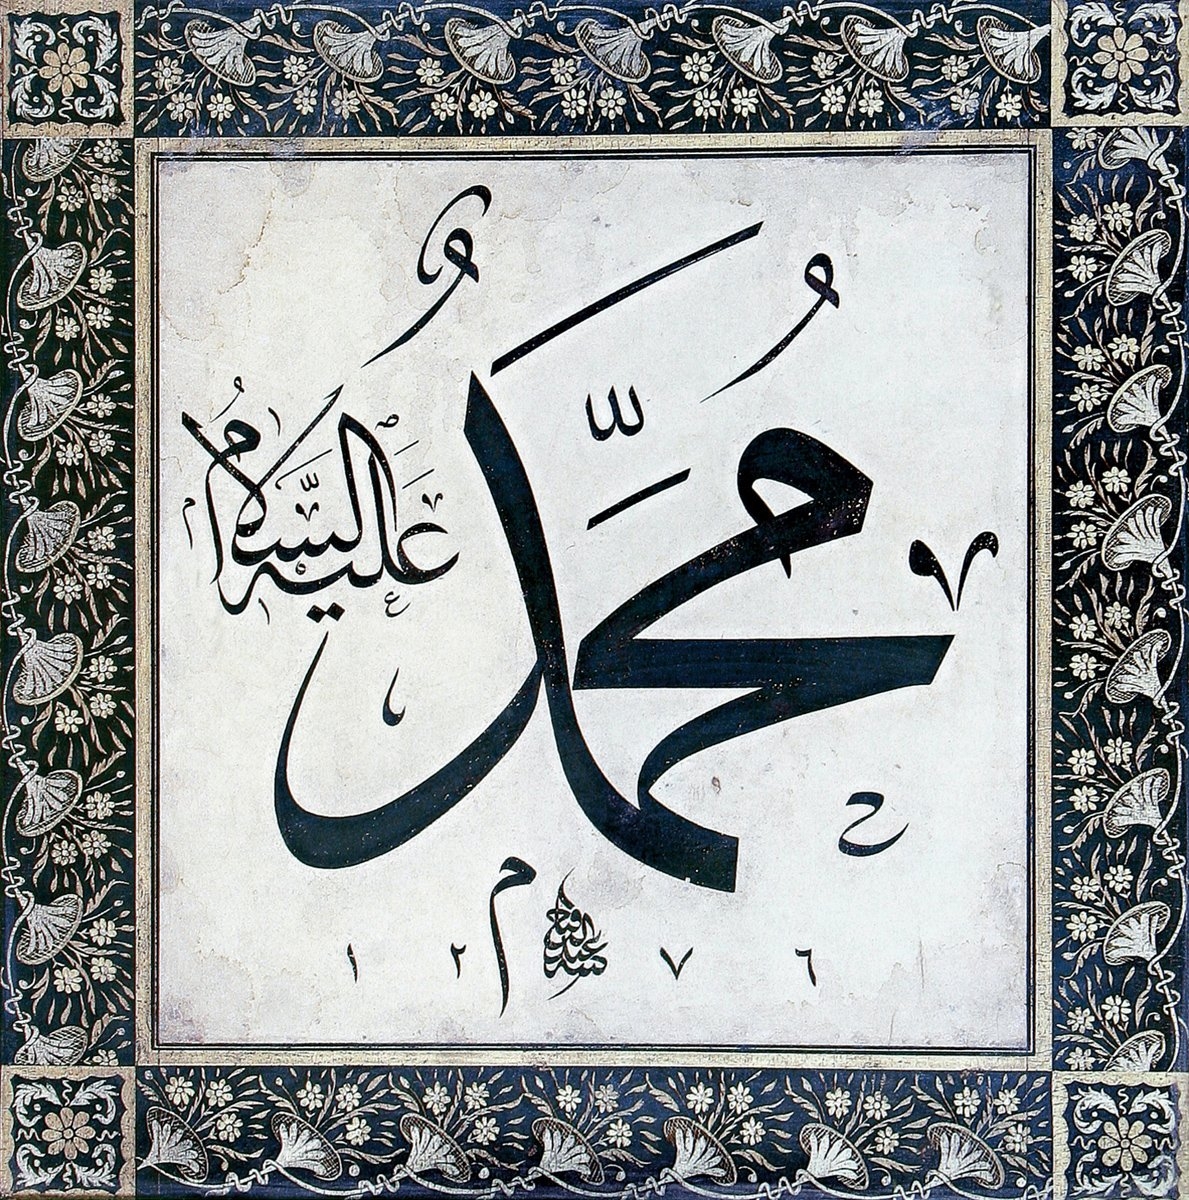 محمد
عليه السلام
١٢٧٦